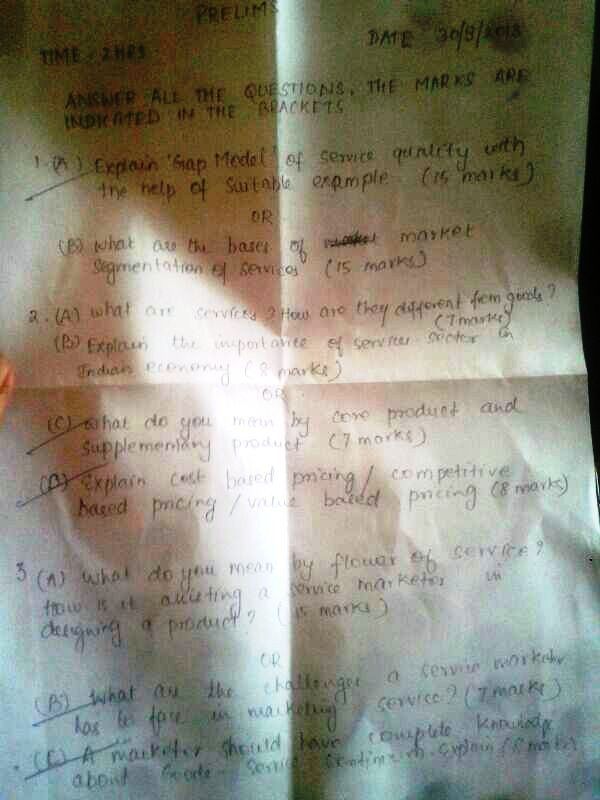 PRELIMS
TIME : 2HRS
DATE 30/9/2013
ANSWER ALL THE QUESTIONS, THE MARKS ARE
INDICATED IN THE BRACKETS
1. (A) Explain 'Gap Model' of service quality with
the help of Suitable example. (15 marks)
OR
(B) What are the bases of market
segmentation of services (15 marks)
2. (A) What are services? How are they different from goods?
(7 marks)
(B) Explain the importance of service sector in
Indian economy (8 marks)
OR
(C) What do you mean by core product and
supplementary product (7 marks)
(D) Explain cost based pricing / competitive
based pricing / value based pricing (8 marks)
3 (A) What do you mean by flower of service?
How is it assisting a service marketer in
designing a product? (15 marks)
OR
(B) What are the challenges a service marketer
has to face in marketing service? (7 marks)
(C) A marketer should have complete knowledge
about Goods - Service Explain (8 marks)